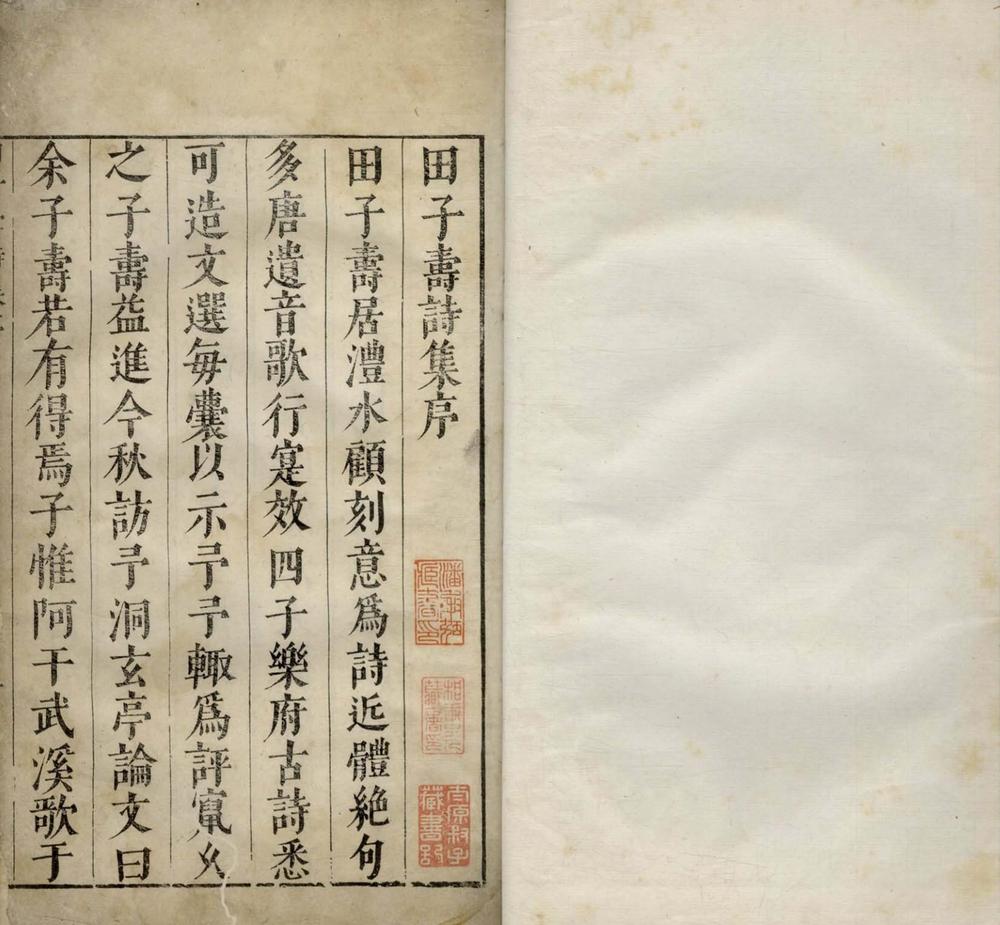 田子壽詩集序
田子壽居澧水顧刻意爲詩近體絶句
多唐遺音歌行寔效四子樂府古詩悉
可造文選毎囊以示予予輙爲評竄乆
之子壽益進今秋訪予洞玄亭論文曰
余子壽若有得焉子惟阿干武溪歌于
太原叔子
藏書記